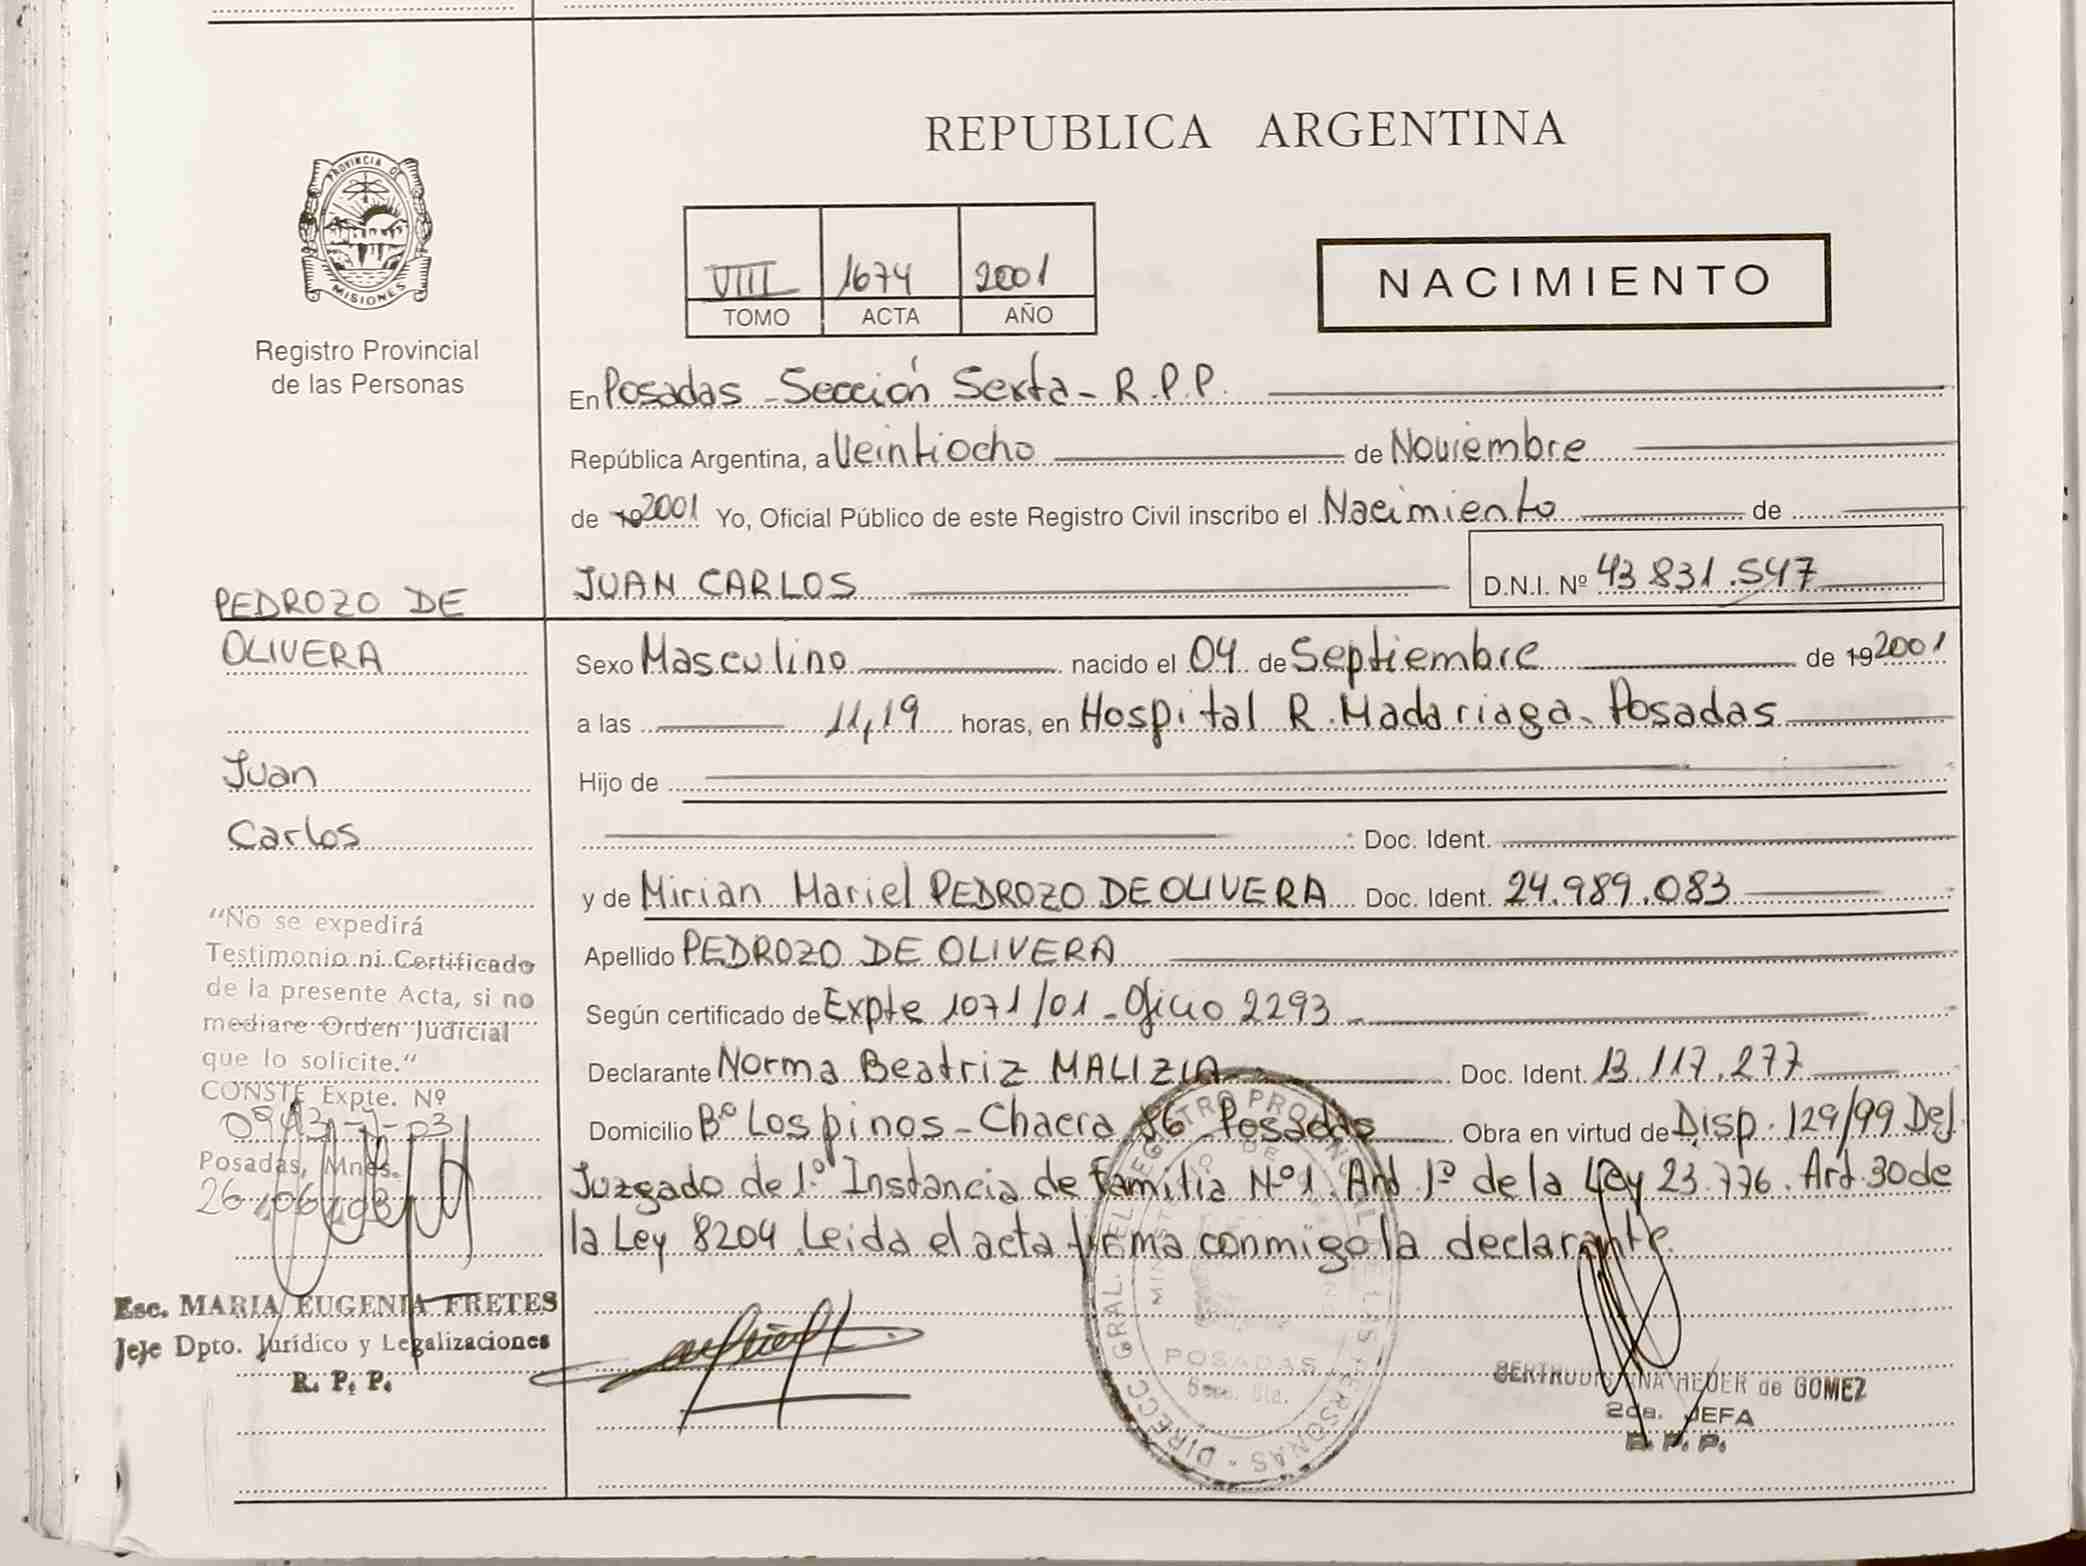 REPUBLICA ARGENTINA
PROVINCIA DE
MISIONES
Registro Provincial
de las Personas
VIII 1674 2001
TOMO ACTA AÑO
NACIMIENTO
En Posadas - Sección Sexta - R.P.P.
República Argentina, a Veintiocho de Noviembre
de 19 2001 Yo, Oficial Público de este Registro Civil inscribo el Nacimiento de
JUAN CARLOS D.N.I. Nº 43 831.547
PEDROZO DE
OLIVERA
Juan
Carlos
Sexo Masculino nacido el 04 de Septiembre de 19 2001
a las 11,19 horas, en Hospital R. Madariaga - Posadas
Hijo de
Doc. Ident.
y de Mirian Mariel PEDROZO DE OLIVERA Doc. Ident. 24.989.083
Apellido PEDROZO DE OLIVERA
Según certificado de Expte 1071/01 - Oficio 2293
Declarante Norma Beatriz MALIZIA Doc. Ident. 13.117.277
Domicilio Bº Los pinos - Chacra 86 - Posadas Obra en virtud de Disp. 129/99 Del
Juzgado de 1º Instancia de Familia Nº1. Art. 1º de la Ley 23.776. Art. 30 de
la Ley 8204. Leida el acta firma conmigo la declarante.
"No se expedirá
Testimonio ni Certificado
de la presente Acta, si no
mediare Orden Judicial
que lo solicite."
CONSTE Expte. Nº
Posadas, Mnes.
26/06/03
Esc. MARIA EUGENIA FRETES
Jefe Dpto. Jurídico y Legalizaciones
R. P. P.
DIRECC. GRAL. DEL REGISTRO PROVINCIAL DE LAS PERSONAS
POSADAS
GERTRUDIS ANA HEDER de GOMEZ
2da. JEFA
R. P. P.